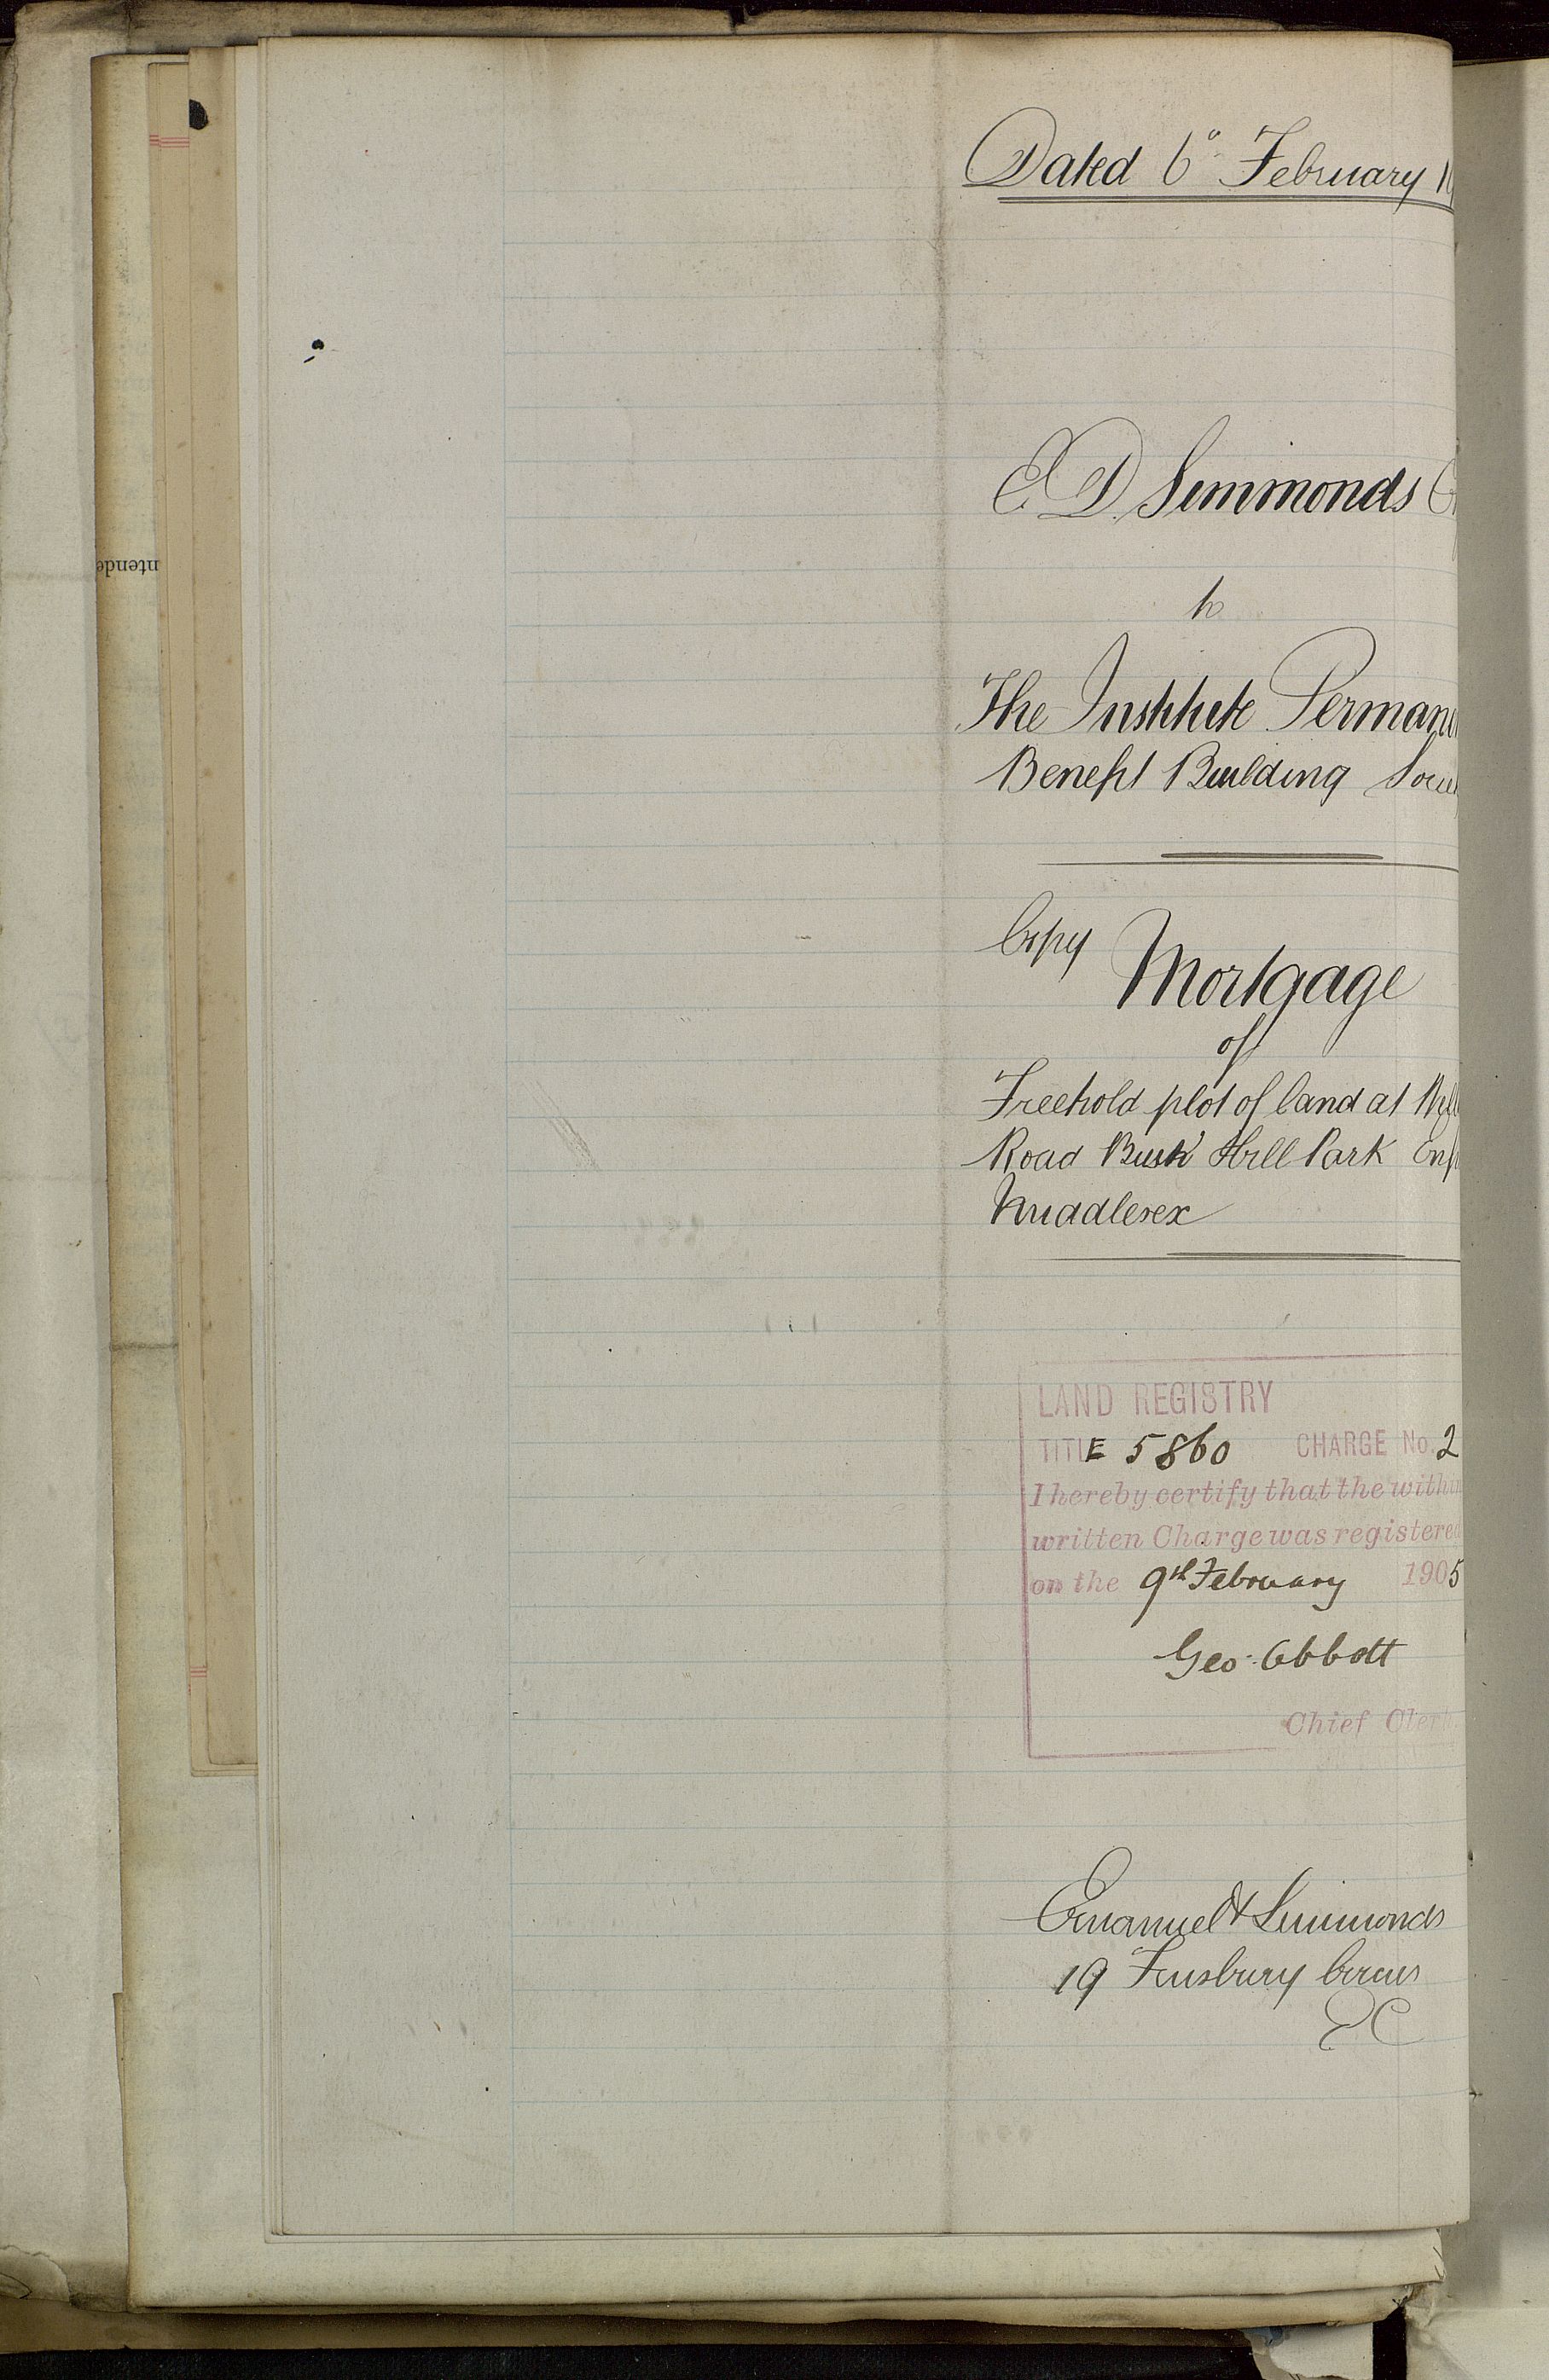 Dated 6° February 1
E. D. Simmonds
to
The Institute Permane
Benefit Building Socie
Copy Mortgage
of
Freehold plot of land at
Road Bush Hill Park Enf
Middlesex
LAND REGISTRY
TITLE 5860 CHARGE No. 2
I hereby certify that the within
written Charge was registered
on the 9th February 1905
Geo. Abbott
Chief Clerk
Emanuel & Simmonds
19 Finsbury Circus
EC
ntende